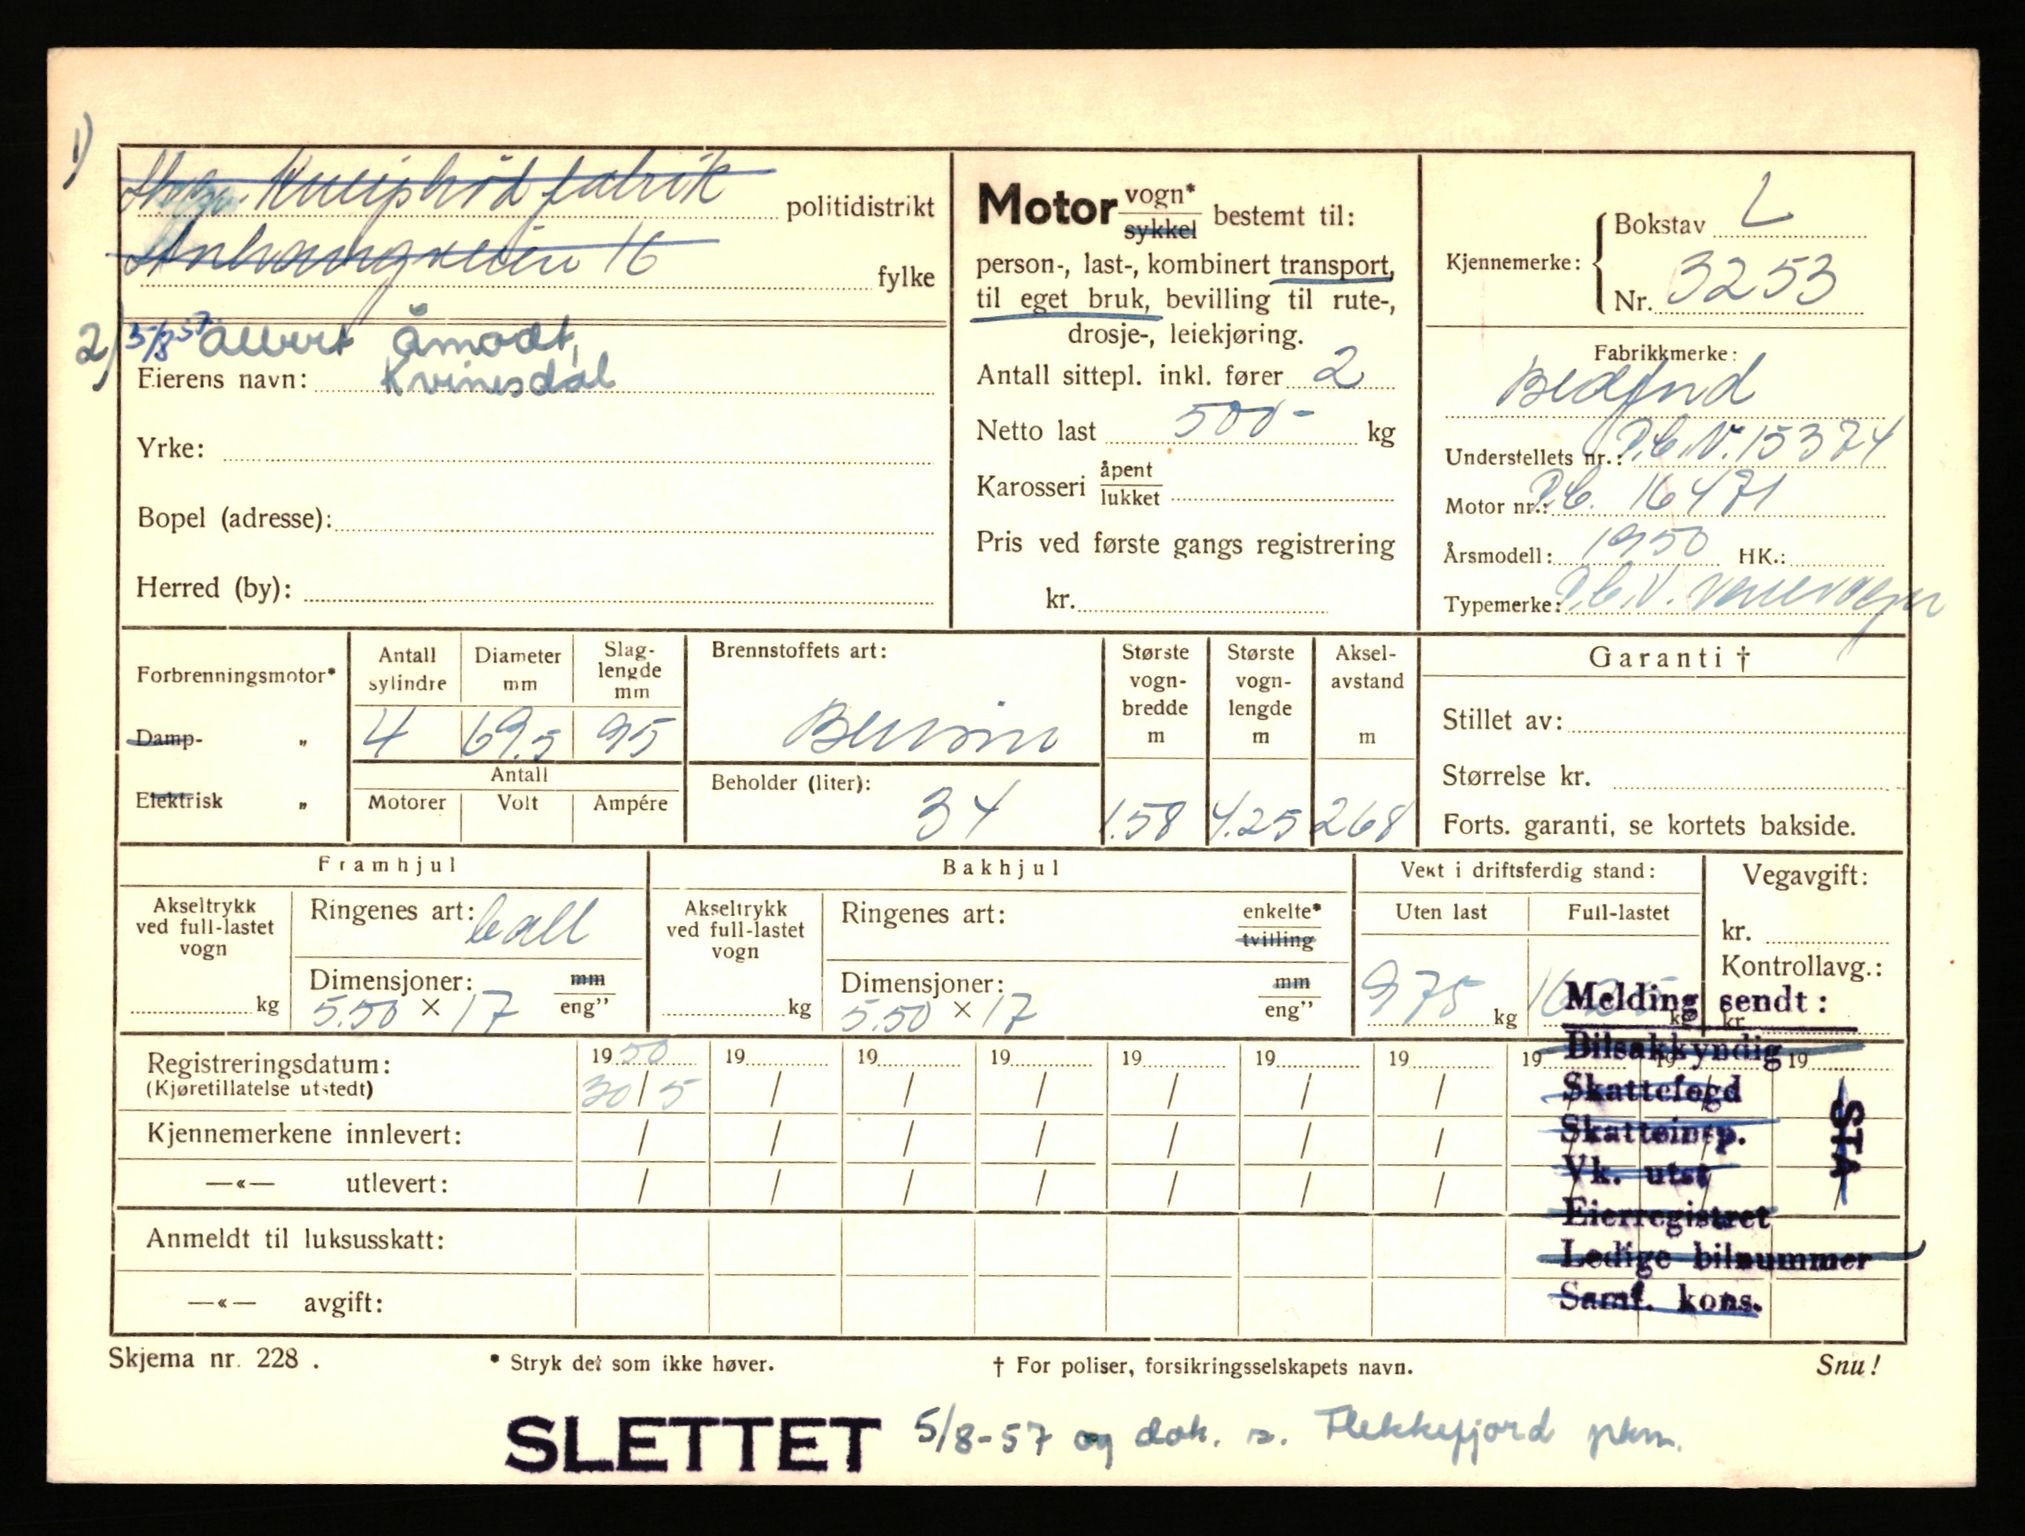 1) Kneipbrød fabrik politidistrikt
16 fylke
2) 5/8 57 Albert Åmodt,
Eierens navn: Kvinesdal
Yrke:
Bopel (adresse):
Herred (by):
Motor vogn* sykkel bestemt til:
person-, last-, kombinert transport,
til eget bruk, bevilling til rute-,
drosje-, leiekjøring.
Antall sittepl. inkl. fører 2
Netto last 500- kg
Karosseri åpent lukket
Pris ved første gangs registrering
kr.
Kjennemerke: Bokstav L
Nr. 3253
Fabrikkmerke:
Bedford
Understellets nr.: P.C.V. 15374
Motor nr.: P.C. 16471
Årsmodell: 1950 HK.:
Typemerke: P.C.V. varevogn
Forbrenningsmotor*
Damp- „
Elektrisk „
Antall sylindre 4
Diameter mm 69,5
Slaglengde mm 95
Antall
Motorer Volt Ampére
Brennstoffets art:
Bensin
Beholder (liter):
34
Største vogn-bredde m 1.58
Største vogn-lengde m 4.25
Aksel-avstand m 268
Garanti †
Stillet av:
Størrelse kr.
Forts. garanti, se kortets bakside.
Framhjul
Akseltrykk ved full-lastet vogn kg
Ringenes art: ball
Dimensjoner: mm
5.50 × 17 eng”
Bakhjul
Akseltrykk ved full-lastet vogn kg
Ringenes art: enkelte* tvilling
Dimensjoner: mm
5.50 × 17 eng”
Vekt i driftsferdig stand:
Uten last Full-lastet
975 kg kg
Vegavgift:
kr.
Kontrollavg.:
kr.
Registreringsdatum: 19 50 19 19 19 19 19 19 19 19 19
(Kjøretillatelse utstedt) 30/5 / / / / / /
Kjennemerkene innlevert: / / / / / / /
—«— utlevert: / / / / / / /
Anmeldt til luksusskatt:
—«— avgift:
Melding sendt:
Bilsakkyndig
Skattefogd
Skatteinsp.
Vk. utst
Eierregistret
Ledige bilnummer
Samf. kons.
STA
Skjema nr. 228 . * Stryk det som ikke høver. † For poliser, forsikringsselskapets navn. Snu!
SLETTET 5/8-57 og dok. s. Flekkefjord pkm.